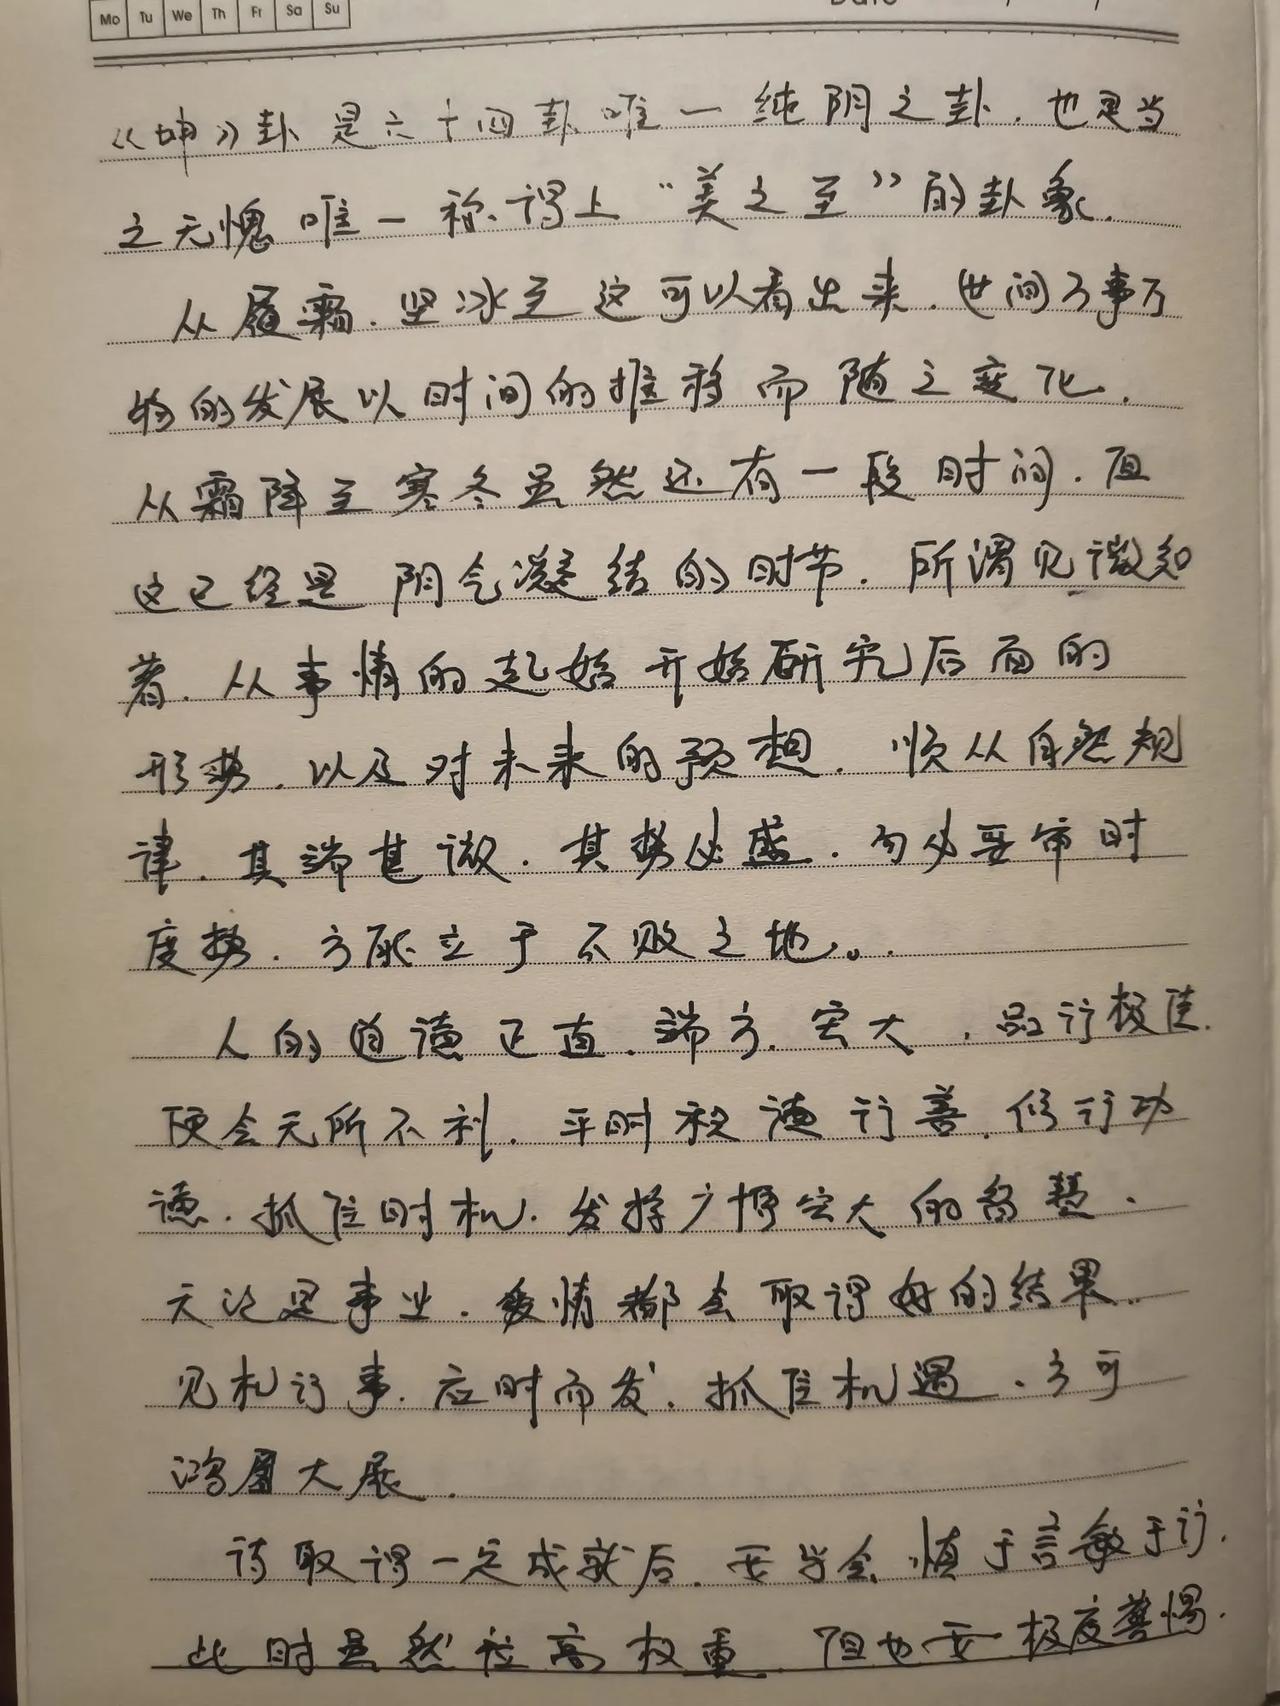 Mo Tu We Th Fr Sa Su
《坤》卦是六十四卦唯一纯阴之卦.也是当
之无愧唯一称得上“美之至”的卦象.
从履霜.坚冰至这可以看出来.世间万事万
物的发展以时间的推移而随之变化.
从霜降至寒冬虽然还有一段时间.但
这已经是阴气凝结的时节.所谓见微知
著.从事情的起始开始研究后面的
形势.以及对未来的预想.顺从自然规
律.其端甚微.其势必盛.勿必要审时
度势.方能立于不败之地。
人的道德正直.端方.宏大,品行极佳.
便会无所不利.平时积德行善.修行功
德.抓住时机.发挥广博宏大的智慧.
无论是事业.爱情都会取得好的结果.
见机行事.应时而发.抓住机遇、方可
鸿图大展.
待取得一定成就后.要学会慎于言敏于行.
此时虽然位高权重.但也要极度警惕.